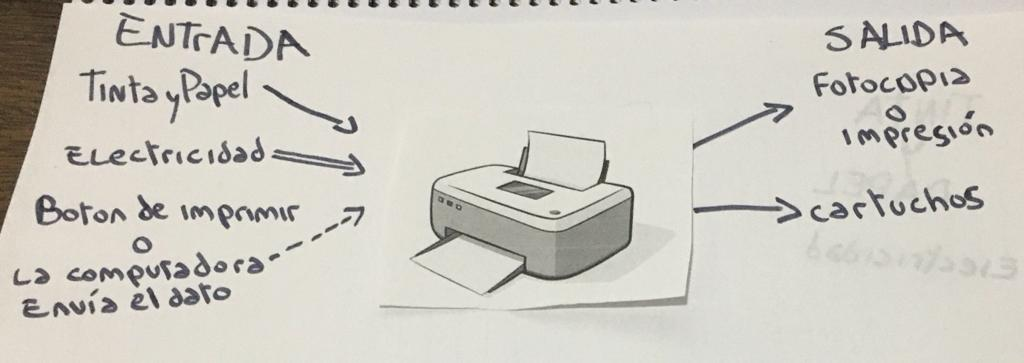 ENTrADA
Tinta y Papel
Electricidad
Boton de imprimir
o
La computadora
Envía el dato
SALIDA
Fotocopia
o
impresión
cartuchos
TINTA
y
PAPEL
Electricidad